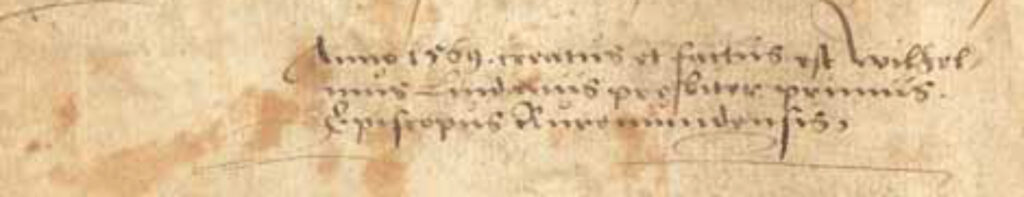 Anno 1569. creatus et factus est Wilhel-
mus Lindanus presbiter primus.
Episcopus Ruremundensis,